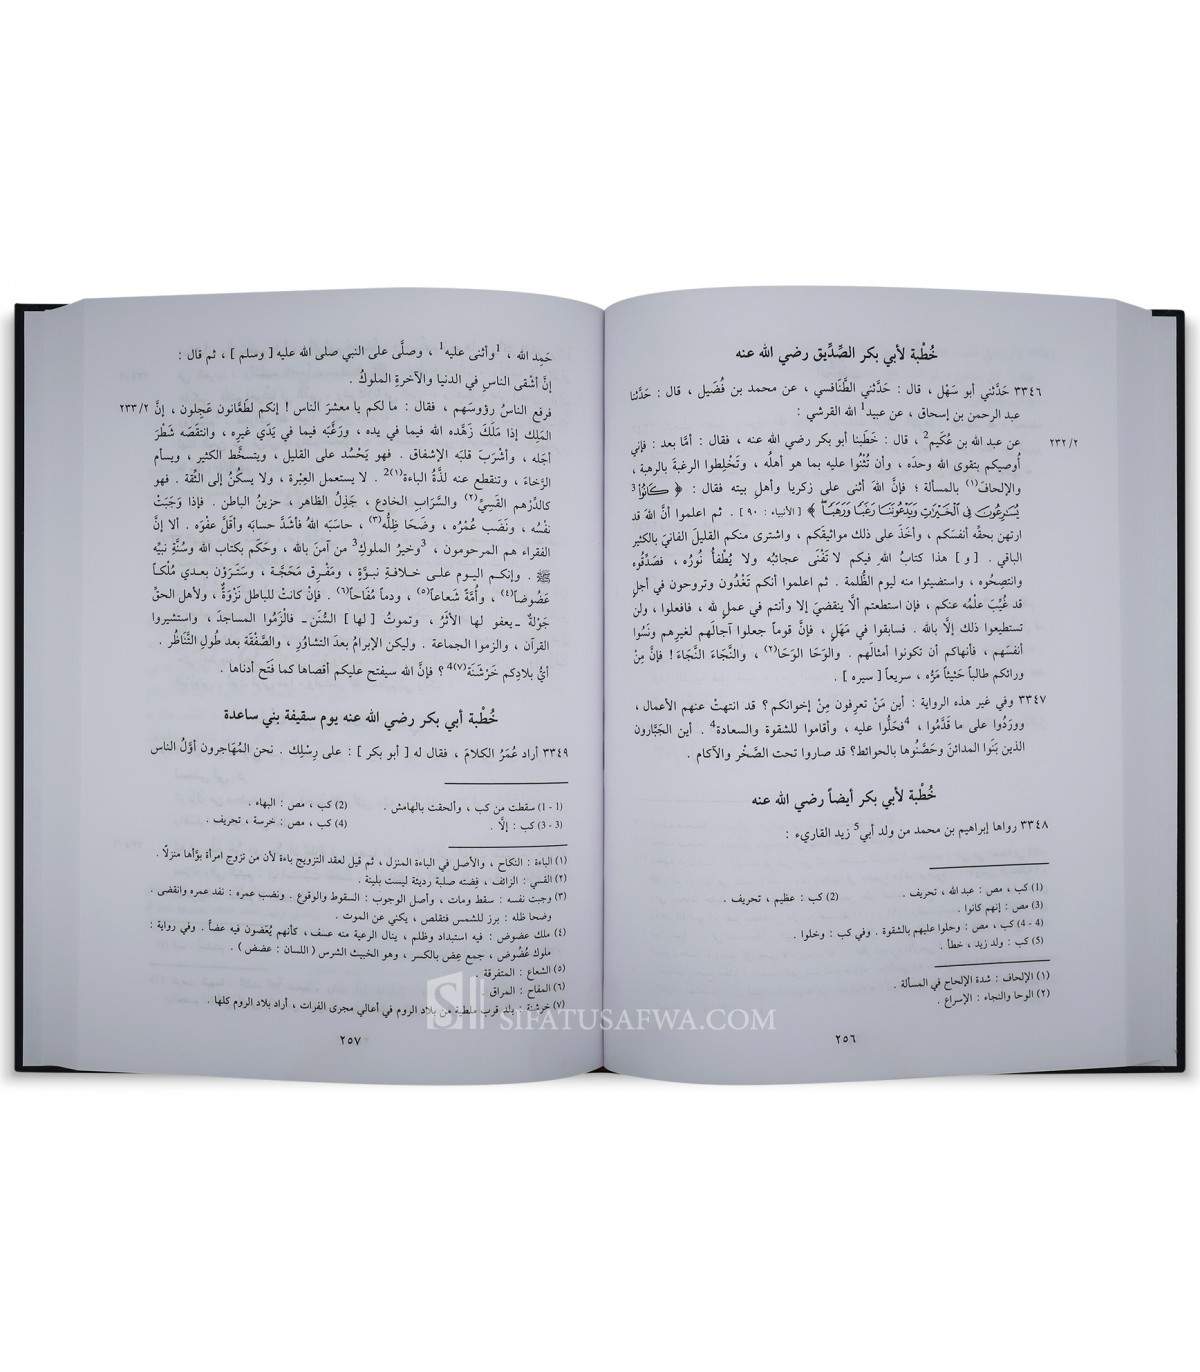 خُطْبة لأبي بكر الصِّدِّيق رضي الله عنه
٣٣٤٦ حَدَّثني أبو سَهْل ، قال : حَدَّثني الطَّنَافسي ، عن محمد بن فُضَيل ، قال : حَدَّثنا
عبد الرحمن بن إسحاق ، عن عبيد1 الله القرشي :
٢٣٢/٢ عن عبد الله بن عُكَيم2 ، قال : خَطَبنا أبو بكر رضي الله عنه ، فقال : أمَّا بعد : فإني
أُوصيكم بتقوى الله وحدَه ، وأن تُثْنُوا عليه بما هو أهلُه ، وتَخْلِطوا الرغبةَ بالرهبة ،
والإلحافَ(١) بالمسألة ؛ فإنَّ الله أثنى على زكريا وأهلِ بيته فقال : ﴿ 3كَانُوا
يُسَٰرِعُونَ فِى ٱلْخَيْرَٰتِ وَيَدْعُونَنَا رَغَبًا وَرَهَبًا ﴾ [ الأنبياء : ٩٠ ] . ثم اعلموا أنَّ اللهَ قد
ارتهن بحقِّه أنفسَكم ، وأخَذَ على ذلك مواثيقَكم ، واشترى منكم القليلَ الفانيَ بالكثير
الباقي . [ و ] هذا كتابُ اللهِ فيكم لا تَفْنَى عجائبُه ولا يُطْفأُ نُورُه ، فصَدِّقُوه
وانتصِحُوه ، واستضيئوا منه ليوم الظُّلمة . ثم اعلموا أنكم تَغْدُون وتروحون في أجلٍ
قد غُيِّبَ علْمُه عنكم ، فإن استطعتم ألَّا ينقضيَ إلا وأنتم في عملٍ لله ، فافعلوا ، ولن
تستطيعوا ذلك إلَّا بالله . فسابقوا في مَهَلٍ ، فإنَّ قوماً جعلوا آجالَهم لغيرِهم ونَسُوا
أنفسَهم ، فأنهاكم أن تكونوا أمثالَهم . والوَحَا الوَحَا(٢) ، والنَّجَاءَ النَّجَاءَ ! فإنَّ مِنْ
ورائكم طالباً حَثيثاً مَرُّه ، سريعاً [ سيره ] .
٣٣٤٧ وفي غير هذه الرواية : أين مَنْ تعرِفون مِنْ إخوانكم ؟ قد انتهتْ عنهم الأعمال ،
ووردُوا على ما قَدَّمُوا ، 4فحَلُّوا عليه ، وأقاموا للشقوة والسعادة4 . أين الجَبَّارون
الذين بَنَوا المدائنَ وحَصَّنُوها بالحوائط؟ قد صاروا تحت الصَّخْر والآكام .
خُطْبة لأبي بكر أيضاً رضي الله عنه
٣٣٤٨ رواها إبراهيم بن محمد من ولد أبي5 زيد القاريء :
(1) كب ، مص : عبد الله ، تحريف . (2) كب : عظيم ، تحريف .
(3) مص : إنهم كانوا .
(4 - 4) كب ، مص : وحلوا عليهم بالشقوة . وفي كب : وخلوا .
(5) كب : ولد زيد ، خطأ .
(١) الإلحاف : شدة الإلحاح في المسألة .
(٢) الوحا والنجاء : الإسراع .
٢٥٦
حَمِد الله ، 1وأثنى عليه1 ، وصلَّى على النبي صلى الله عليه [ وسلم ] ، ثم قال :
إنَّ أشْقى الناسِ في الدنيا والآخرةِ الملوكُ .
٢٣٣/٢ فرفع الناسُ رؤوسَهم ، فقال : ما لكم يا معشرَ الناس ! إنكم لطَعَّانون عَجِلون ، إنَّ
المَلِك إذا مَلَكَ زَهَّده الله فيما في يده ، ورَغَّبَه فيما في يَدَي غيرِه ، وانتقَصَه شَطْرَ
أجَله ، وأشْرَبَ قلبَه الإشفاق . فهو يَحْسُد على القليل ، ويتسخَّط الكثير ، ويسأم
الرَّخاءَ ، وتنقطع عنه لذَّةُ الباءة(١)2 . لا يستعمل العِبْرة ، ولا يسكُنُ إلى الثِّقة . فهو
كالدِّرْهم القَسِيِّ(٢) والسَّرَابِ الخادع ، جَذِلُ الظاهر ، حزينُ الباطن . فإذا وَجَبَتْ
نفْسُه ، ونَضَب عُمْرُه ، وضَحَا ظِلُّه(٣) ، حاسَبَه اللهُ فأشَدَّ حسابَه وأقلَّ عفْوَه . ألا إنَّ
الفقراء هم المرحومون ، 3وخيرُ الملوكِ3 من آمنَ بالله ، وحَكَم بكتاب الله وسُنَّةِ نبيِّه
ﷺ . وإنكم اليوم على خلافةِ نبوَّةٍ ، ومَفْرِق مَحَجَّة ، وسَتَرَوْن بعدي مُلْكاً
عَضُوضاً(٤) ، وأُمَّةً شَعاعاً(٥) ، ودماً مُفَاحاً(٦) . فإنْ كانتْ للباطل نَزْوَةٌ ، ولأهل الحقِّ
جَوْلةٌ ـ يعفو لها الأثَرُ ، وتموتُ [ لها ] السُّنَن ـ فالْزَمُوا المساجدَ ، واستشيروا
القرآن ، والزموا الجماعة . وليكن الإبرامُ بعدَ التشاوُر ، والصَّفْقَة بعد طُولِ التَّنَاظُر .
أيُّ بلادِكم خَرْشَنَة(٧)4 ؟ فإنَّ الله سيفتح عليكم أقصاها كما فَتَح أدناها .
خُطْبة أبي بكر رضي الله عنه يوم سقيفة بني ساعدة
٣٣٤٩ أراد عُمَرُ الكلامَ ، فقال له [ أبو بكر ] : على رِسْلِك . نحن المُهَاجرون أوَّلُ الناس
(1 - 1) سقطت من كب ، وألحقت بالهامش . (2) كب ، مص : البهاء .
(3 - 3) كب : إلَّا . (4) كب ، مص : خرسة ، تحريف .
(١) الباءة : النكاح ، والأصل في الباءة المنزل ، ثم قيل لعقد التزويج باءة لأن من تزوج امرأة بوَّأها منزلًا .
(٢) القسي : الزائف ، فِضته صلبة رديئة ليست بلينة .
(٣) وجبت نفسه : سقط ومات ، وأصل الوجوب : السقوط والوقوع . ونضب عمره : نفد عمره وانقضى .
وضحا ظله : برز للشمس فتقلص ، يكني عن الموت .
(٤) ملك عضوض : فيه استبداد وظلم ، ينال الرعية منه عسف ، كأنهم يُعَضون فيه عضاً . وفي رواية :
ملوك عُضُوض ، جمع عِض بالكسر ، وهو الخبيث الشرس ( اللسان : عضض ) .
(٥) الشعاع : المتفرقة .
(٦) المفاح : المراق
(٧) خرشنة : بلد قرب ملطية من بلاد الروم في أعالي مجرى الفرات ، أراد بلاد الروم كلها .
٢٥٧
SIFATUSAFWA.COM